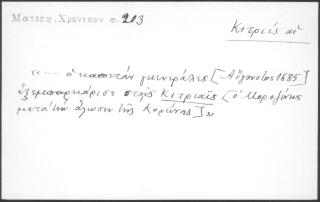 Ματεση, Χρονικον σ. 203
Κιτριές αἱ
«.... ὁ καπιτὰν γκενεράλες [Αὔγουστος 1685]
ἐξεμπαρκάρισε στὴς Κιτριαῖς [ὁ Μοροζίνης
μετὰ τὴν ἅλωσιν τῆς Κορώνης]»